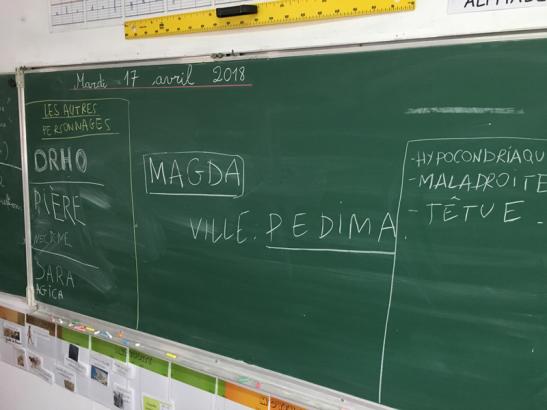 Mardi 17 avril 2018
LES AUTRES
PERSONNAGES
ORHO
PIÈRE
SARA
AGICA
MAGDA
VILLE. PEDIMA.
-HYPOCONDRIAQU
-MALADROITE
-TÊTUE.